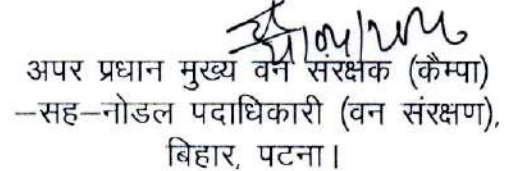 अपर प्रधान मुख्य वन संरक्षक (कैम्पा)
–सह–नोडल पदाधिकारी (वन संरक्षण),
बिहार, पटना।